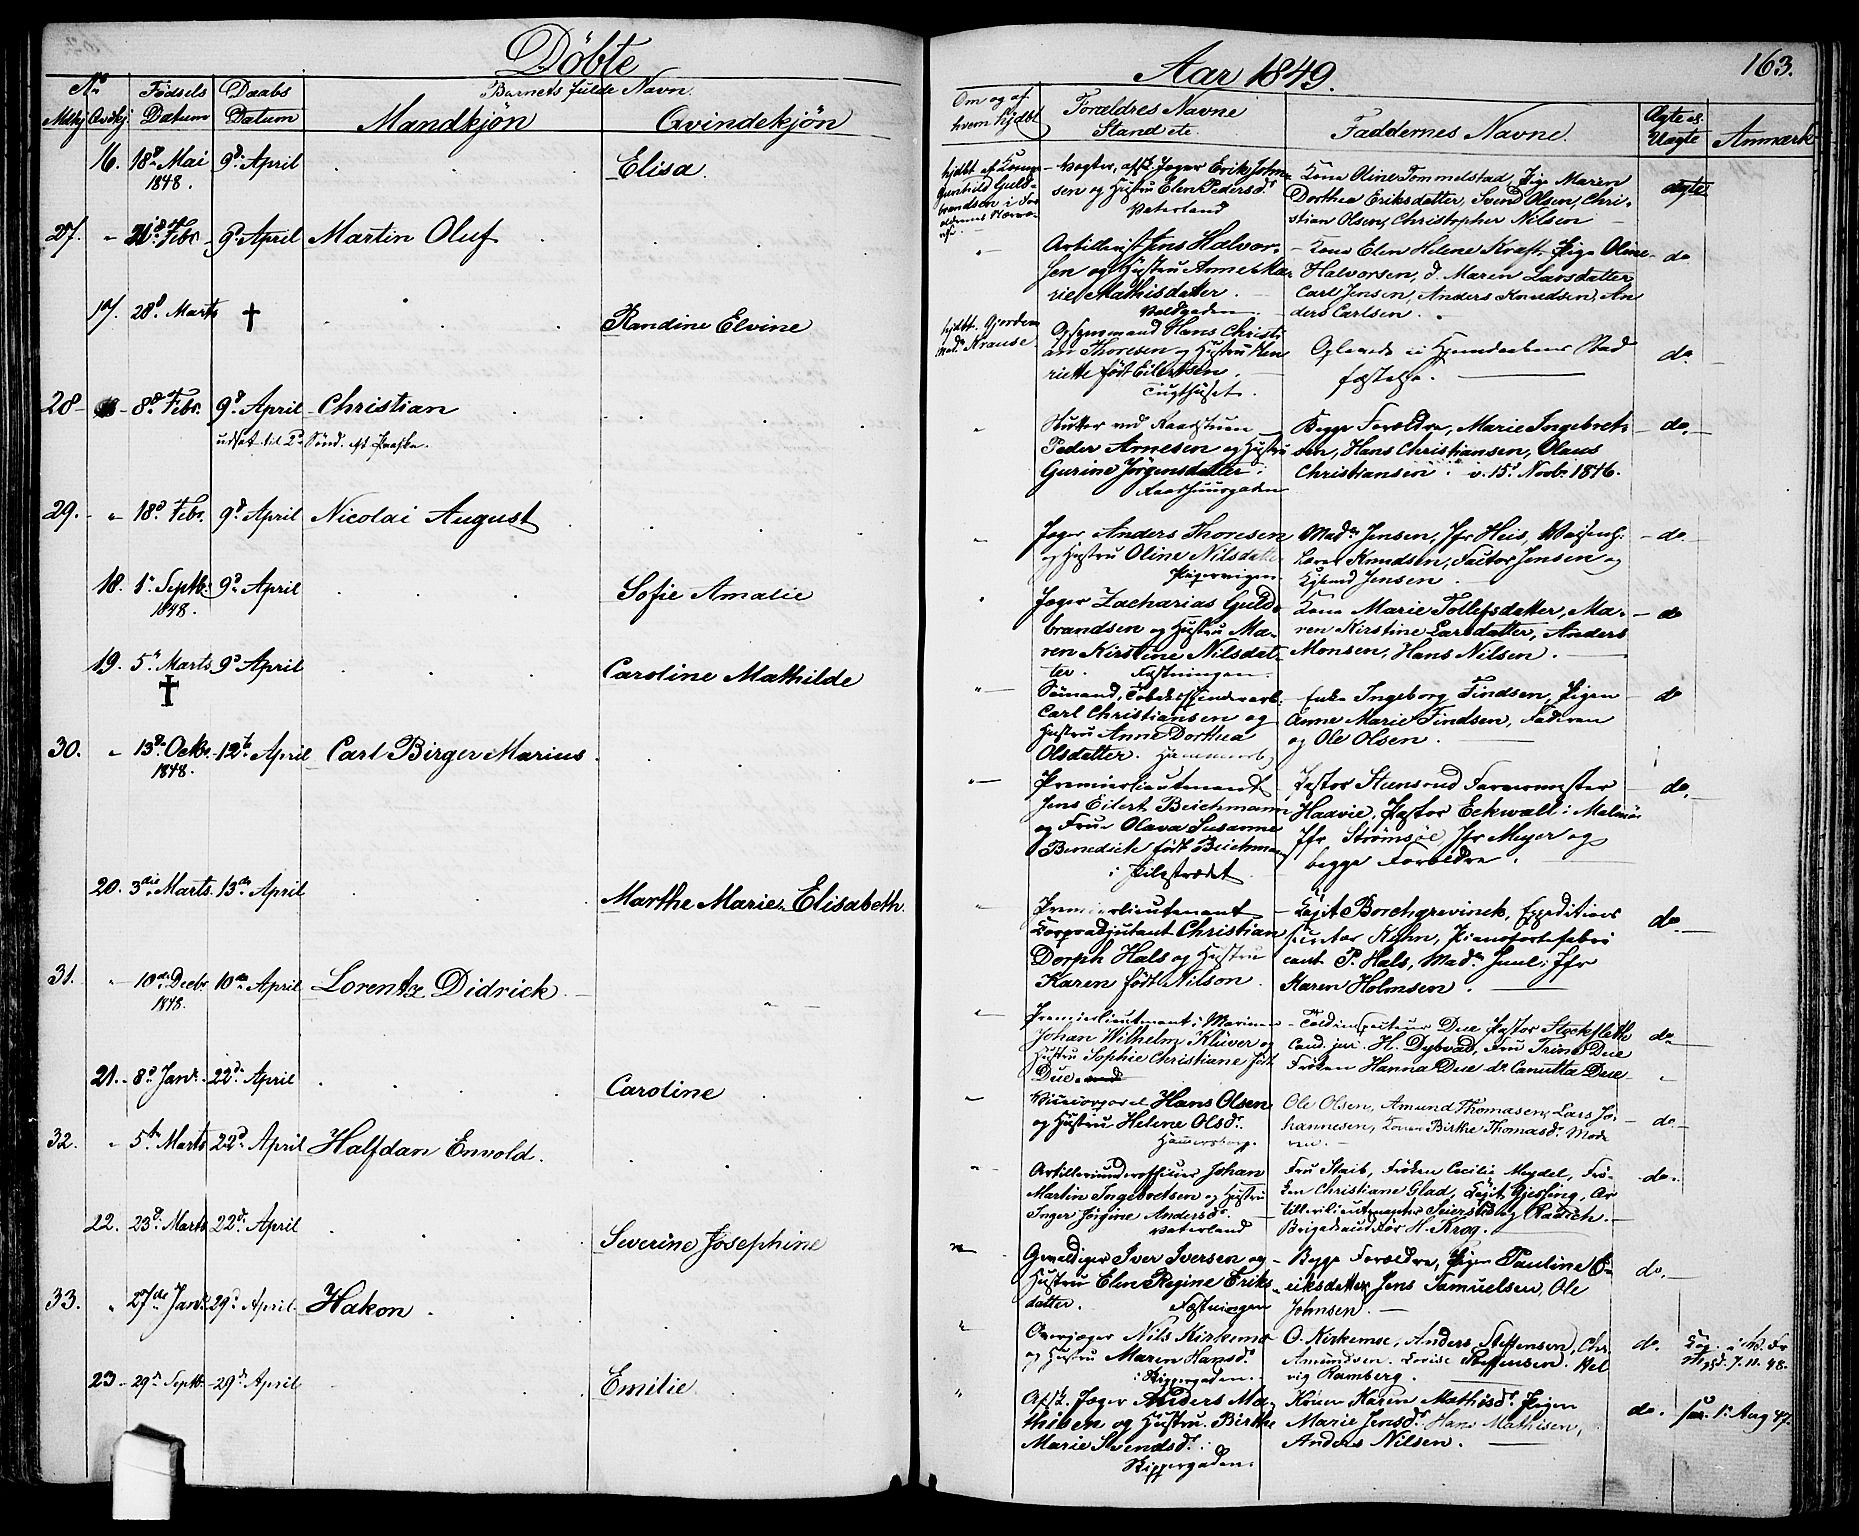 Döbte
Aar 1849.
163.
No
Mdkj Qvdkj
Fødsels Datum
Daabs Datum
Barnets fulde Navn.
Mandkjön
Qvindekjön
Om og af hvem hjdbt
Forældres Navne
Stand etc.
Faddernes Navne.
Ægte el. Uægte
Anmærk
16. 18d Mai 1848. 9d April
Elisa.
Vogter, afsk. Jæger Erik John-
sen og Hustru Elen Pedersdr
Vaterland
Kone Oline Tommelstad, Pige Maren
Dorthea Eriksdatter, Svend Olsen, Chri-
stian Olsen, Christopher Nilsen
ægte
27. " 9d April Martin Oluf
Artillerist Jens Halvor-
sen og Hustru Anne Ma-
rie Mathisdatter.
Voldgaden.
Kone Elen Helene Kraft, Pige Oline
Halvorsen, d. Maren Larsdatter,
Carl Jensen, Anders Knudsen, An
ders Carlsen.
do
17. 28d Marts †
Randine Elvine
hjdbt. Gjordem
Mad. Krause
Hans Christi
an Thoresen og Hustru Hen
riette født Eilertsen.
Tugthuset.
Oplæst i Hjemdaabens Stad
fæstelse.
do
28 - 8de Febr. 9d April Christian
udsat til 2d Sønd. eft. Paaske.
ved Raadstuen
Peder Arnesen og Hustru
Gurine Jörgensdatter.
Raadhuusgaden
Begge Forældre, Marie Ingebret
sen, Hans Christiansen, Olaus
Christiansen. v. 15d Novbr 1846.
do.
29. " 18d Febr. 9d April Nicolai August
Jæger Anders Thoresen
og Hustru Oline Nilsdatter
Pipervigen.
Madm Jensen, Jfr Heis,
Lærer Knudsen, Factor Jensen og
Jensen.
do
18. 1. Septb. 1848. 9d April
Sofie Amalie
Jæger Zacharias Guld-
brandsen og Hustru Ma-
ren Kirstine Nilsdat-
ter. Fæstningen.
Kone Marie Tollefsdatter, Ma-
ren Kirstine Larsdatter, Anders
Monsen, Hans Nilsen.
do
19. 5te Marts 9d April
†
Caroline Mathilde
Carl Christiansen og
Hustru Anne Dorthea
Olsdatter.
Enke Ingeborg Findsen, Pigen
Anne Marie Findsen, Faderen
og Ole Olsen.
do
30. " 13de Octbr. 1848. 12te April Carl Birger Marius
Premierlieutenant
Jens Eilert Beichmann
og Frue Olava Susanne
Benedicte født Beichman
i Pilestrædet
Pastor Steensrud
Haavie, Pastor Eckwall i Malmö
Jfr. Strömsöe Jfr Meyer og
begge Forældre.
do.
20. 3die Marts 13de April
Marthe Marie Elisabeth.
Premierlieutenant
Corpsadjutant Christian
Dorph Hals og Hustru
Karen født Nilson.
Capit Borchgrevinck, Expeditions
secretær Kuhn, Pianofortefabri
cant P. Hals, Madm Juul, Jfr
Karen Holmsen.
do.
31. " 10de Decbr 1848. 10de April Lorentz Didrick
Premierlieutenant i Marinen
Johan Wilhelm Klüver og
Hustru Sophie Christiane født
Due.
Toldinspecteur Due, Pastor Stockfleth
Cand. jur. H. Dybvad, Fru Trine Due
Frøken Hanna Due, do Canutta Due
do
21. 8d Janr. 22d April
Caroline
Vicecorporal Hans Olsen
og Hustru Helene Olsdr.
Hammersborg.
Ole Olsen, Amund Thomasen, Lars Jo-
hannesen, Konen Birthe Thomasdr, Mode
ren.
do
32. " 5te Marts 22d April Halfdan Envold.
Artilleriunderofficier Johan
Martin Ingebretsen og Hustru
Inger Jörgine Andersdr.
Vaterland
Fru Staib, Frøken Cecilie Meydel, Frø-
ken Christiane Glad, Capit. Gjessing, Ar
tillerilieutenanter Seiersted og Radich.
Brigadeauditør H. Krog.
do.
22. 23d Marts 22d April
Severine Josephine
Gevaldiger Iver Iversen og
Hustru Elen Regine Eriks
datter. Fæstningen
Begge Forældre, Pigen Pauline E-
riksdatter, Jens Samuelsen, Ole
Johnsen.
do.
33. " 27de Janr. 29d April Hakon.
Overjæger Nils Kirkemo
og Hustru Maren Hansdr.
i Skippergaden.
O. Kirkemoe, Anders Steffensen, Chr.
Amundsen. Lovise Steffensen. Hel
vig Ramberg.
do.
7. 11. 48.
23 29de Septb. 29de April
Emilie
Afsk. Jæger Anders Ma-
thisen og Hustru Birthe
Marie Svendsdr.
Skippergaden.
Konen Karen Mathisdr. Pigen
Marie Jensdr. Hans Mathisen,
Anders Nilsen.
do.
1. Aug 47.